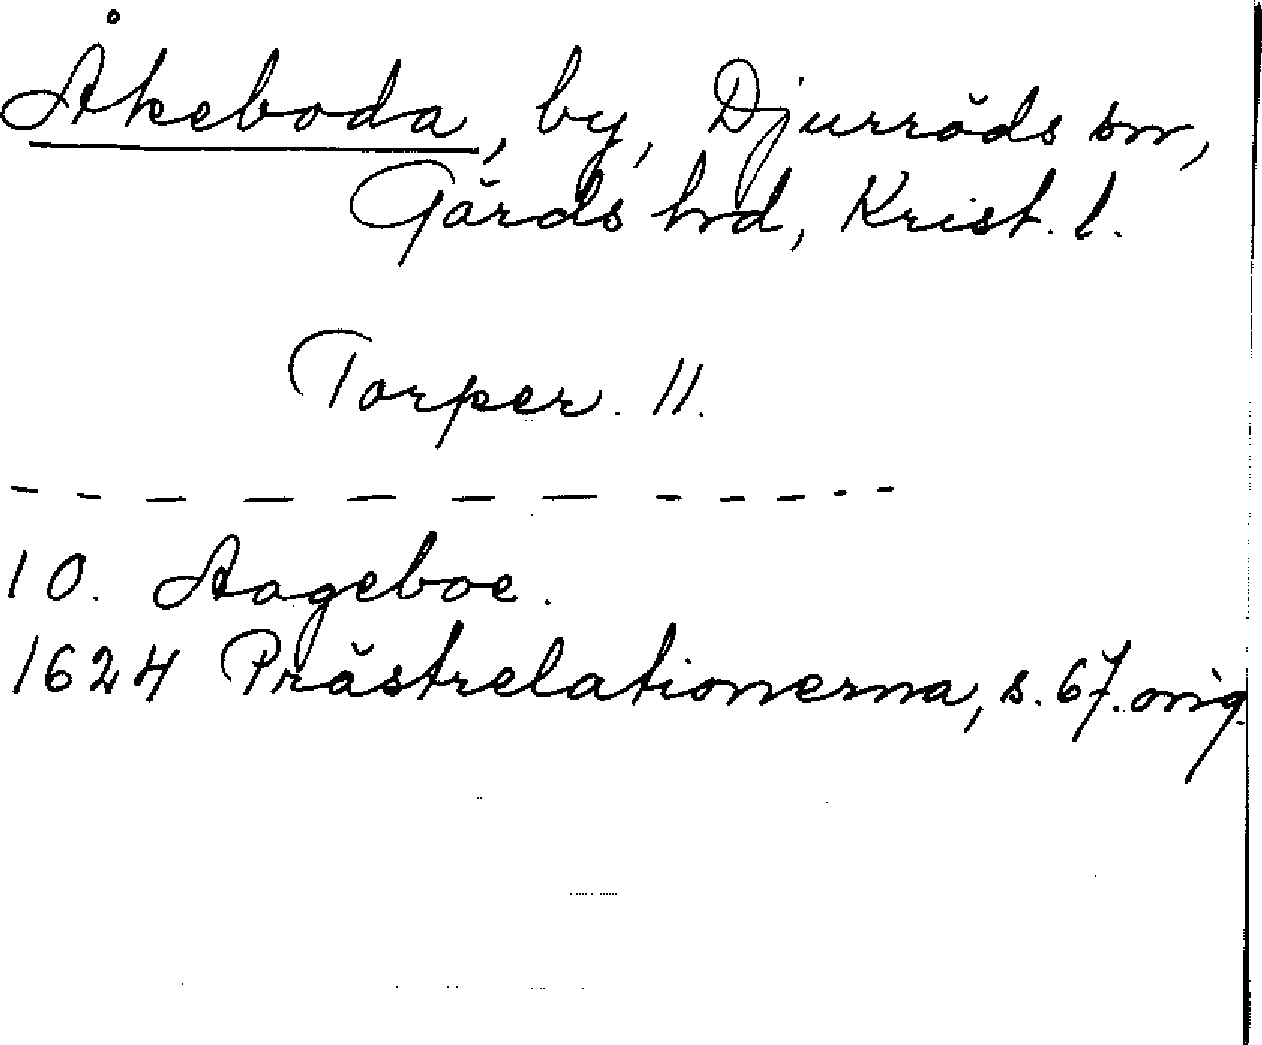 Åkeboda, by, Djurröds sn,
Gärds hd, Krist. l.
Torper. 11.
10. Aageboe.
1624 Prästrelationerna, s. 67. orig.